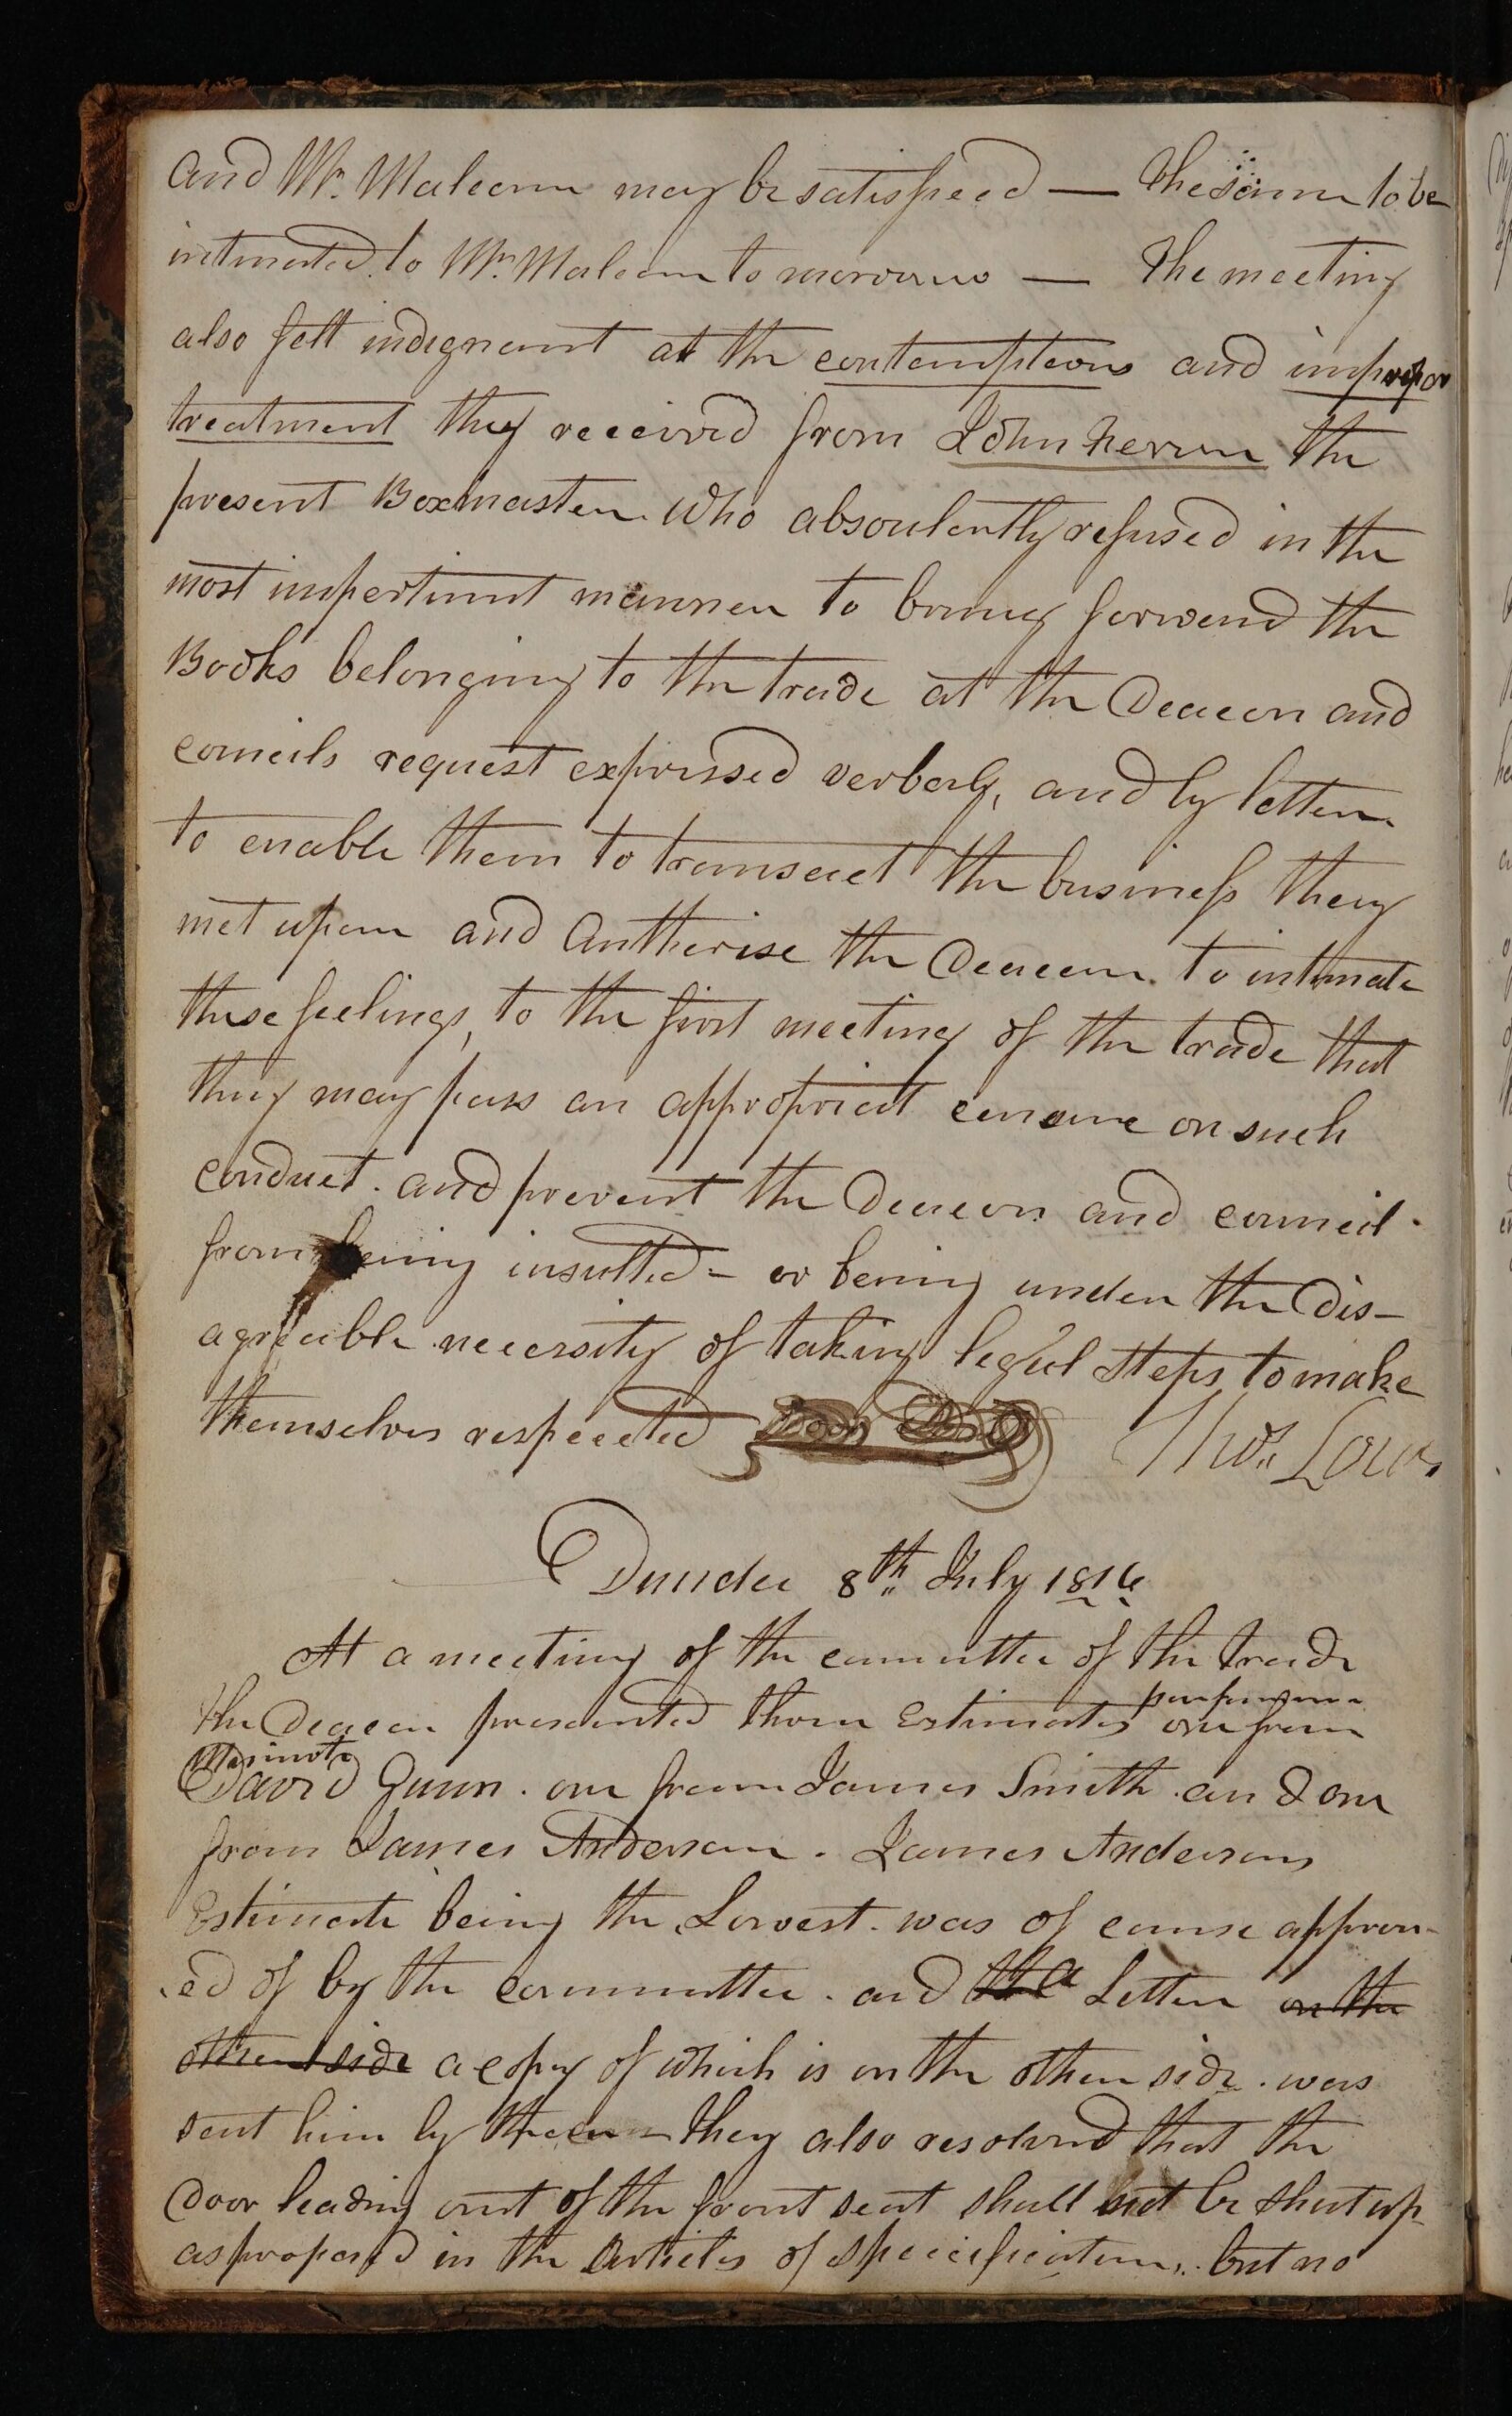 and Mr. Malcom may be satisfied — the same to be
intimated to Mr. Malcom to morrow — The meeting
also felt indignant at the contemptious and improper
treatment they received from John the
present Boxmaster who absoulently refused in the
most impertinent manner to bring forward the
Books belonging to the trade at the Deacon and
councils request expressed verbaly, and by letter
to enable them to transact the business they
met upon and Autherise the Deacon to intimate
these feelings, to the first meeting of the trade that
they may pass an appropriat censure on such
conduct. and prevent the Deacon and council
from being insulted - or being under the dis-
agreeible necessity of taking legal steps to make
themselves respected Thos. Low
Dundee 8th July 1816
At a meeting of the committee of the trade
the Deacon presented them Estimates one from
David Gunn. one from James Smith. and one
from James Anderson. James Andersons
Estimate being the Lowest. was of course approv-
ed of by the committee. and the a Letter on the
other side a copy of which is on the other side. was
sent him by them - they also resolved that the
door leading out of the front seat shall not be shut up
as proposed in the Articles of specification, but no